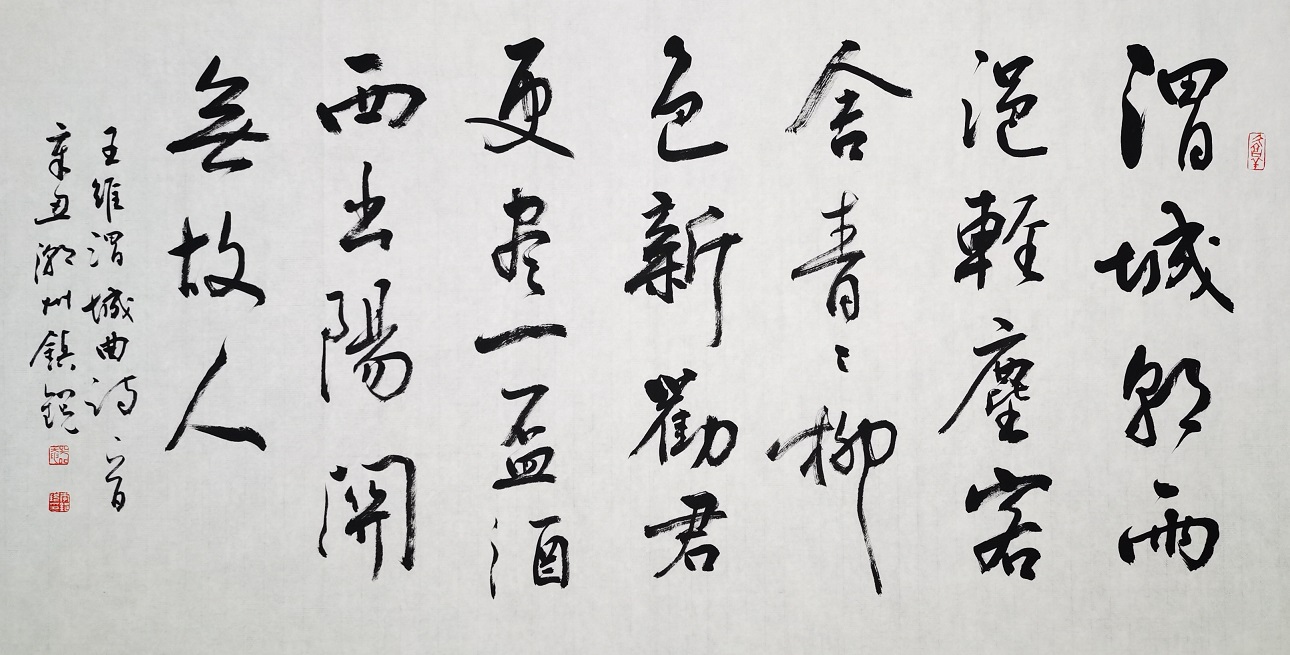 渭城朝雨
浥輕塵客
舍青〻柳
色新勸君
更盡一盃酒
西出陽関
無故人
王維渭城曲詩一首
辛丑潮州鎮锐